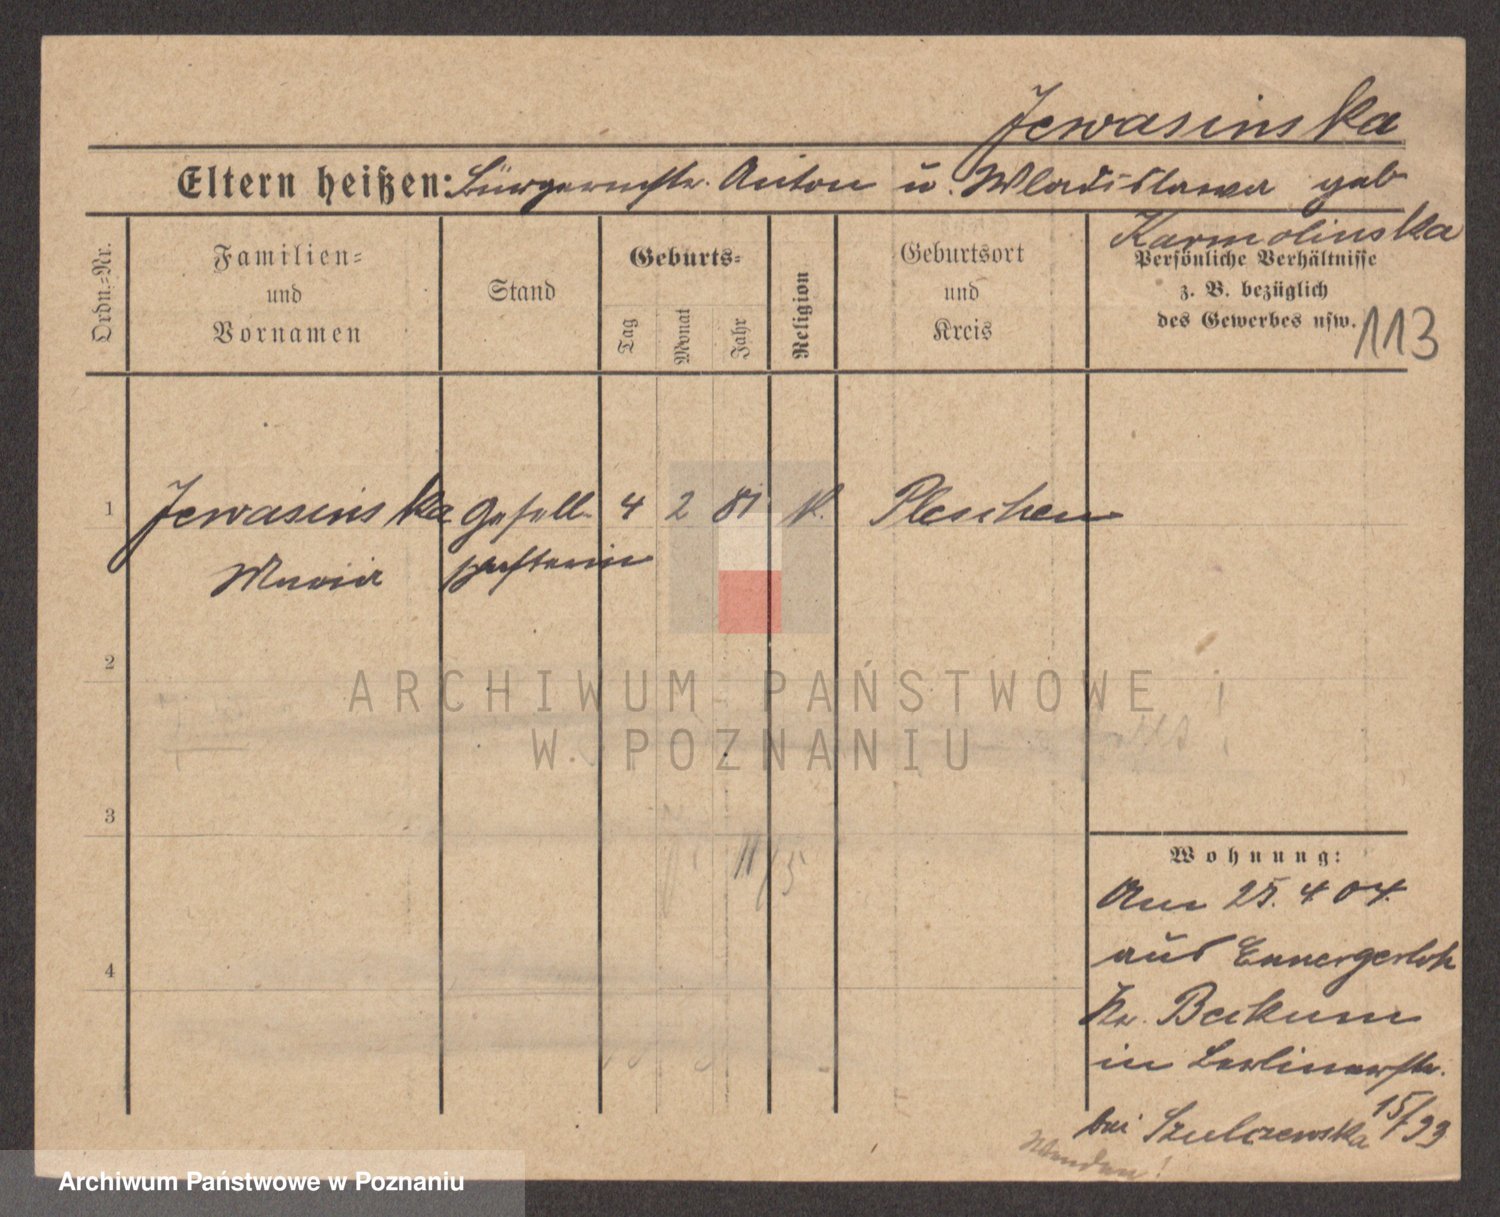 Jewasinska
Eltern heißen: Bürgermstr. Anton u. Wladislawa geb
Karmolinska
Ordn.-Nr.
Familien-
und
Vornamen
Stand
Geburts-
Tag
Monat
Jahr
Religion
Geburtsort
und
Kreis
Persönliche Verhältnisse
z. B. bezüglich
des Gewerbes usw.
113
1 Jewasinska Gesell- 4 2 81 k. Pleschen
Maria schafterin
2
ARCHIWUM PAŃSTWOWE
W POZNANIU
3
11/5
4
Wohnung:
Am 25. 4 04.
aus Ennergerloh
Kr. Beckum
in Berlinerstr.
bei Szulczewska 15/
Wenden!
Archiwum Państwowe w Poznaniu